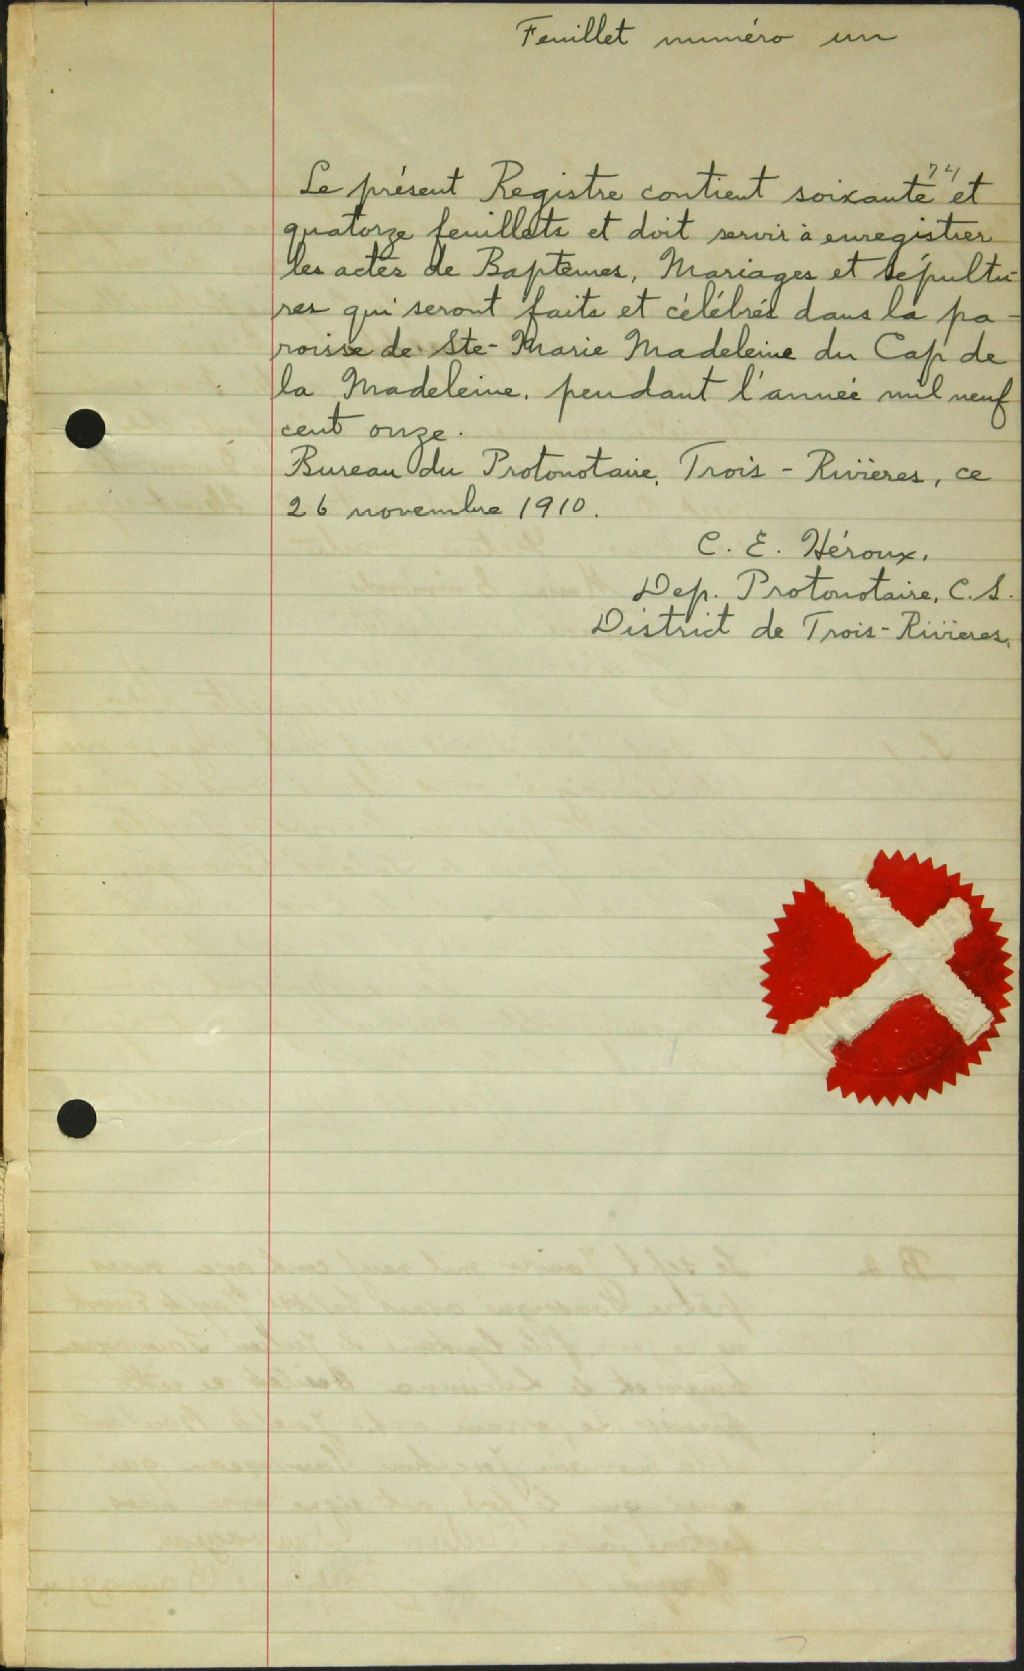 Feuillet numéro un
74
Le présent Registre contient soixante et
quatorze feuillets et doit servir à enregistrer
les actes de Baptêmes, Mariages et sépultu-
res qui seront faits et célébrés dans la pa-
roisse de Ste-Marie Madeleine du Cap de
la Madeleine. pendant l'année mil neuf
cent onze.
Bureau du Protonotaire, Trois-Rivières, ce
26 novembre 1910.
C. E. Héroux.
Dep. Protonotaire, C.S.
District de Trois-Rivières.